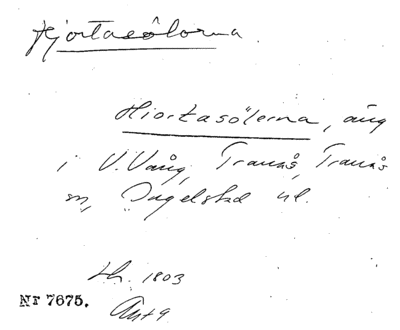 Hjortasölorna.
Hiortasölerna, äng
i V. Vång, Tranås, Tranås
sn, Ingelstad hd.
Lh. 1803
Nr 7675.
Akt 9